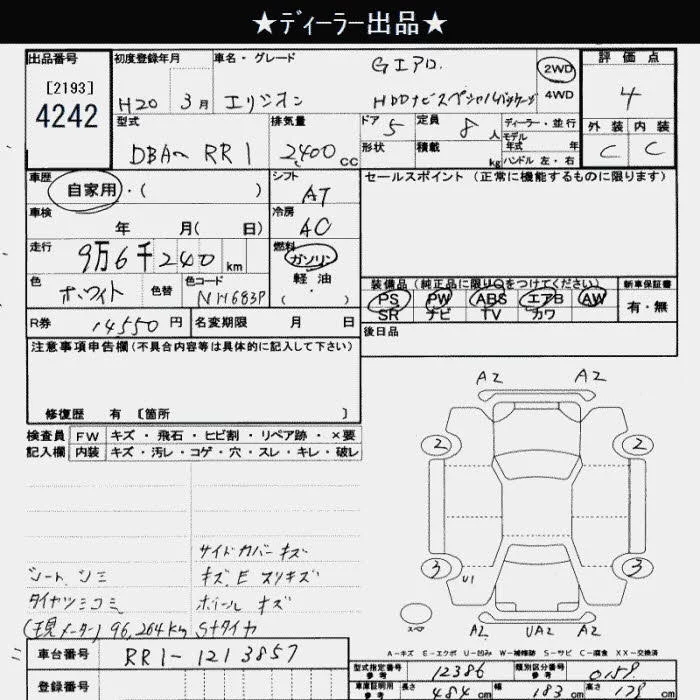 ★ディーラー出品★
出品番号 初度登録年月 車名・グレード 評価点
[2193]
4242
H20 3月 エリシオン
Gエアロ
HDDナビスペシャルパッケージ
2WD
4WD
4
外装 内装
C C
型式 排気量 ドア 定員 ディーラー・並行
DBA〜 RR1 2,400cc
5 8人
モデル年式 年
形状 積載 kg ハンドル 左・右
車歴 シフト セールスポイント (正常に機能するものに限ります)
自家用・( )
AT
車検 冷房
年 月( 日)
AC
走行 燃料
9万6千240km
ガソリン
軽油
( ・ )
色 色替 色コード
ホワイト NH683P
装備品 (純正品に限り○をつけてください) 新車保証書
PS PW ABS エアB AW
SR ナビ TV カワ
有・無
R券 14550円 名変期限 月 日
後日品
注意事項申告欄(不具合内容等は具体的に記入して下さい)
修復歴 有 〔箇所 〕
検査員 FW キズ・飛石・ヒビ割・リペア跡・×要
記入欄 内装 キズ・汚レ・コゲ・穴・スレ・キレ・破レ
A2 A2
2 2
3 U1 3
A2 UA2 A2
サイドカバーキズ
シート シミ キズ、E スリキズ
タイヤツミコミ ホイール キズ
(現メーター) 96,264km Sタイヤ
A-キズ E-エクボ U-凹み W-補修跡 S-サビ C-腐食 XX-交換済
車台番号 RR1-1213857
型式指定番号 参考 12386 類別区分番号 参考 0159
登録番号
車庫証明用 参考 長さ 484cm 幅 183cm 高さ 179cm